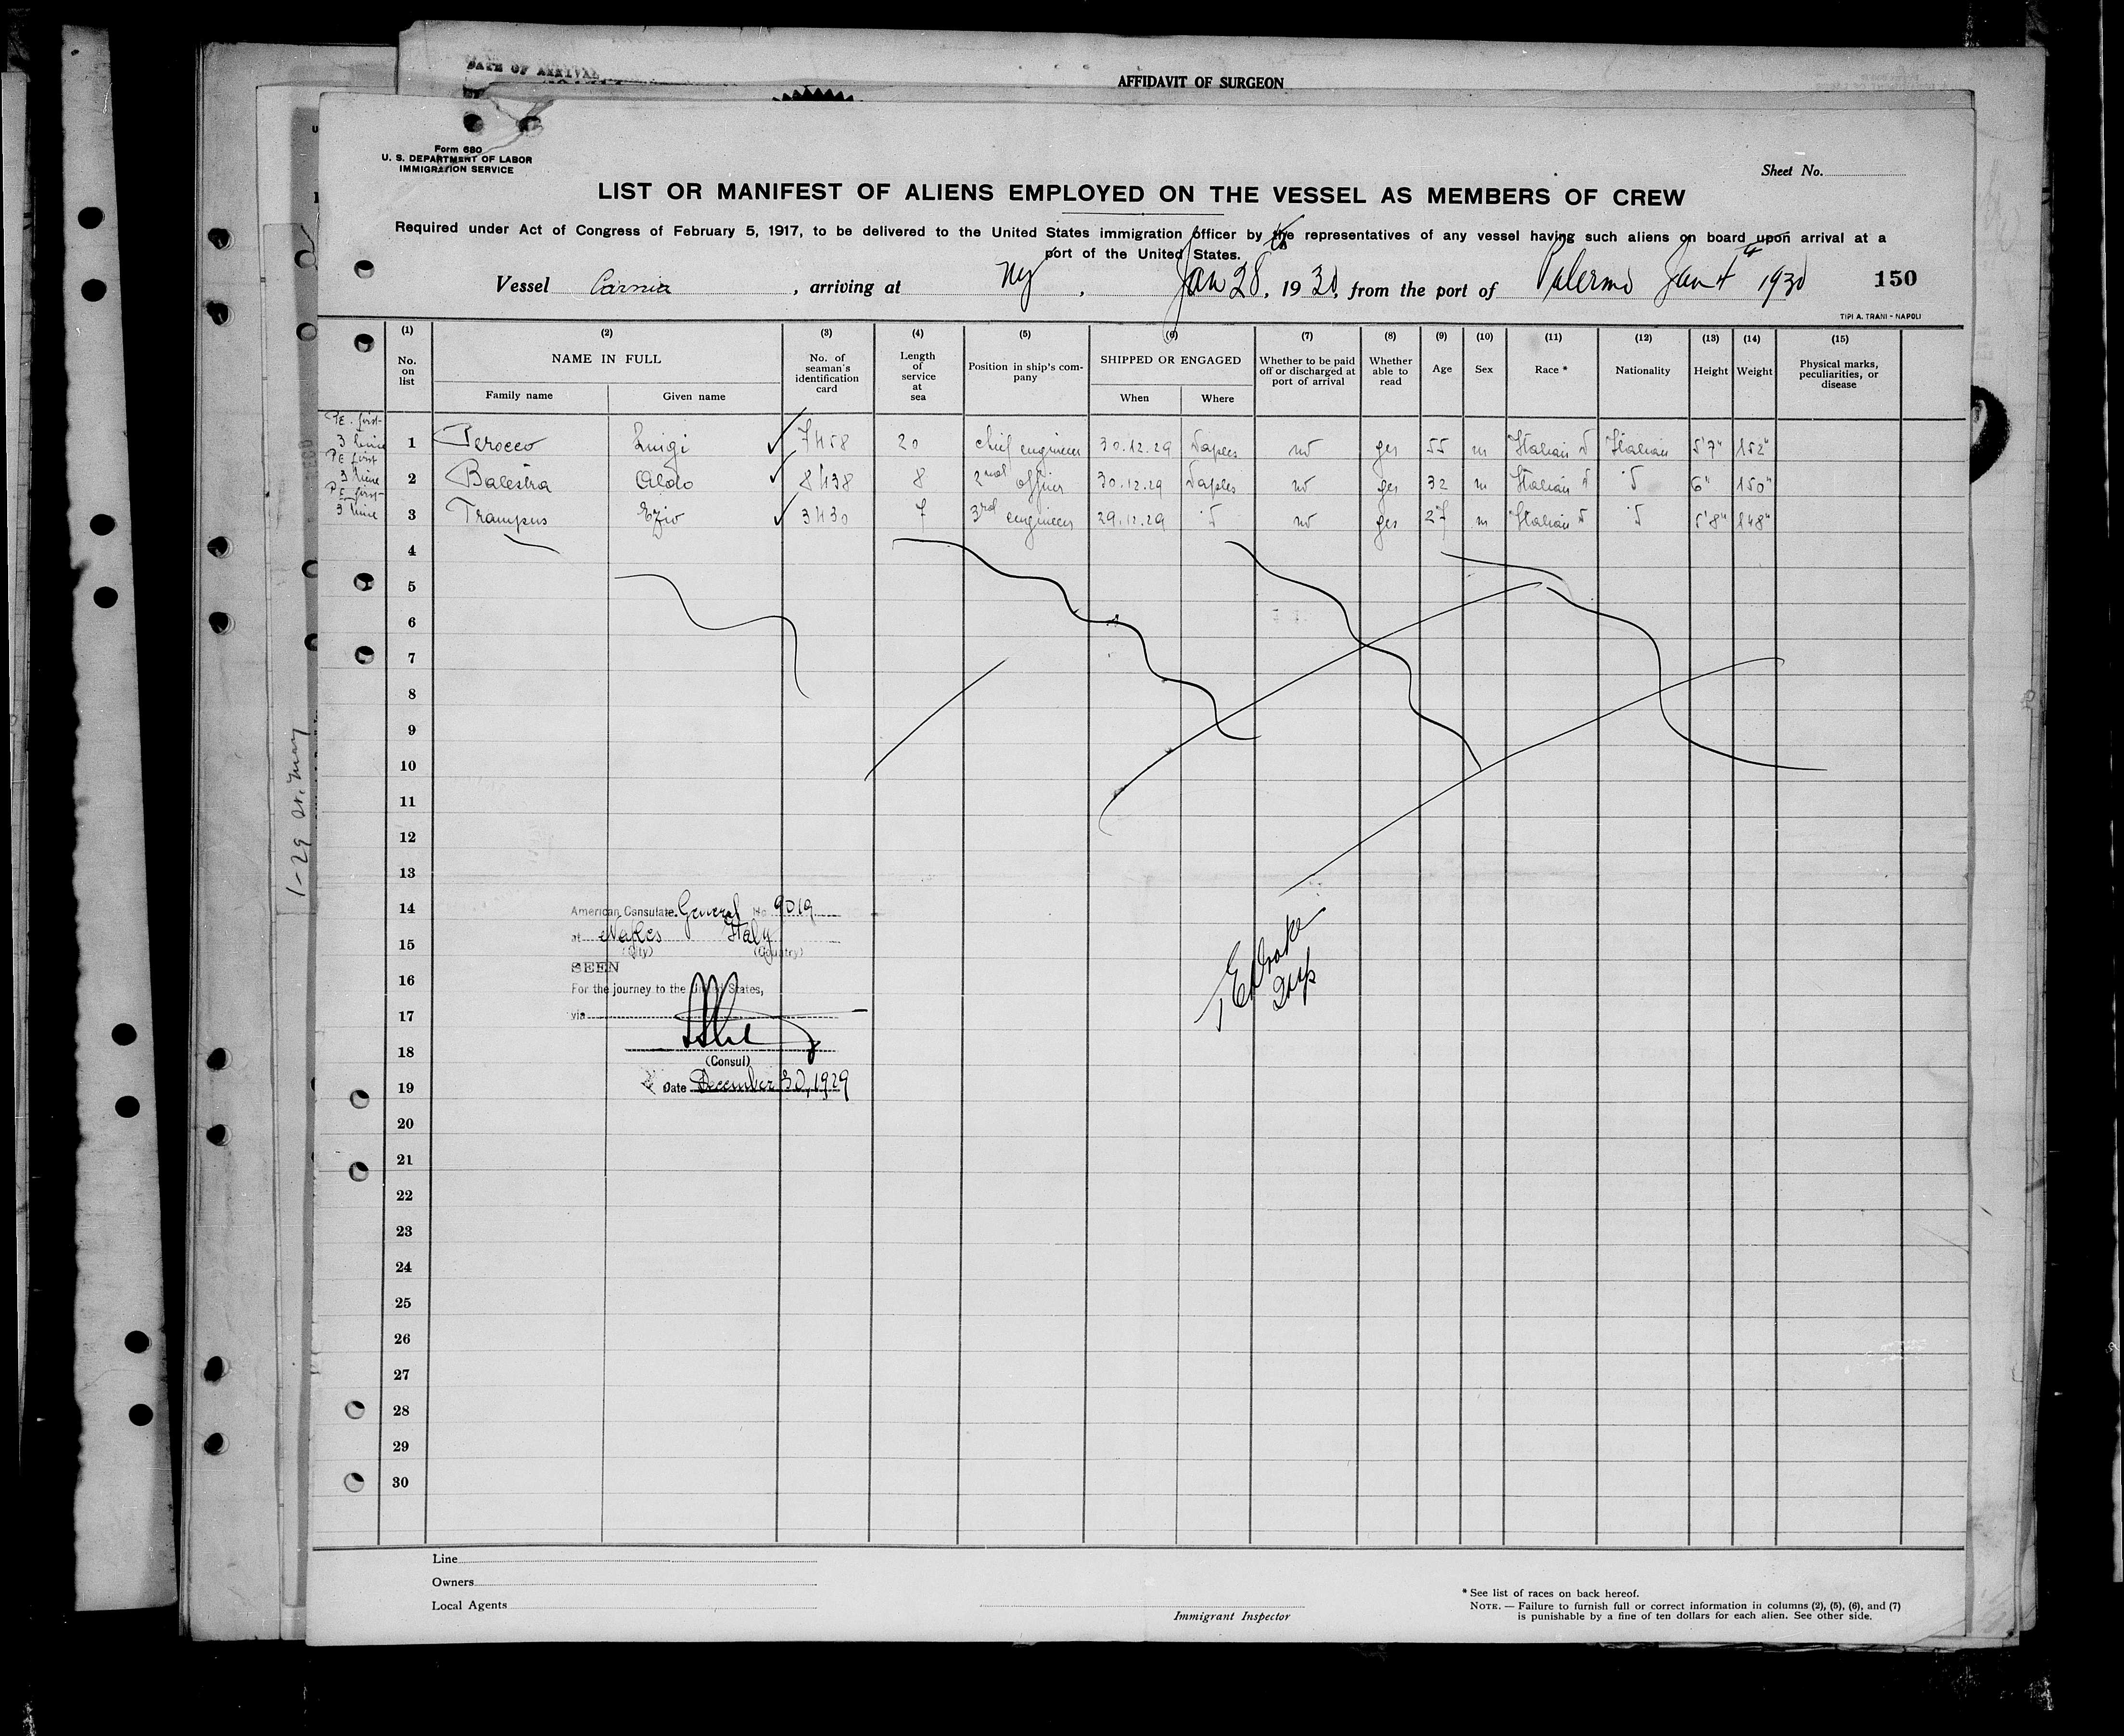 DATE OF ARRIVAL
AFFIDAVIT OF SURGEON
Form 680
U. S. DEPARTMENT OF LABOR
IMMIGRATION SERVICE
Sheet No.
LIST OR MANIFEST OF ALIENS EMPLOYED ON THE VESSEL AS MEMBERS OF CREW
Required under Act of Congress of February 5, 1917, to be delivered to the United States immigration officer by the representatives of any vessel having such aliens on board upon arrival at a
port of the United States.
Vessel Carnia, arriving at NY, Jan 28, 1930, from the port of Palermo Jan 4th 1930 150
TIPI A. TRANI - NAPOLI
(1) (2) (3) (4) (5) (6) (7) (8) (9) (10) (11) (12) (13) (14) (15)
No. on list NAME IN FULL No. of seaman's identification card Length of service at sea Position in ship's company SHIPPED OR ENGAGED Whether to be paid off or discharged at port of arrival Whether able to read Age Sex Race * Nationality Height Weight Physical marks, peculiarities, or disease
Family name Given name When Where
PE. first 3 time 1 Perocco Luigi 7458 20 chief engineer 30.12.29 Naples no yes 55 m Italian S Italian 5'7" 152"
PE first 3 time 2 Balestra Aldo 8438 8 2nd officer 30.12.29 Naples no yes 32 m Italian 6" 150"
PE first- 3 time 3 Trampus Ezio 3430 7 3rd engineer 29.12.29 no yes 27 m Italian 5'8" 148"
4
5
6
7
8
9
10
11
12
13
14
15
16
17
18
19
20
21
22
23
24
25
26
27
28
29
30
American Consulate General No. 9019
at Naples Italy
(City) (Country)
SEEN
For the journey to the United States,
via
(Consul)
Date December 30, 1929
Insp
1-29
Line
Owners
Local Agents
Immigrant Inspector
* See list of races on back hereof.
NOTE. — Failure to furnish full or correct information in columns (2), (5), (6), and (7)
is punishable by a fine of ten dollars for each alien. See other side.